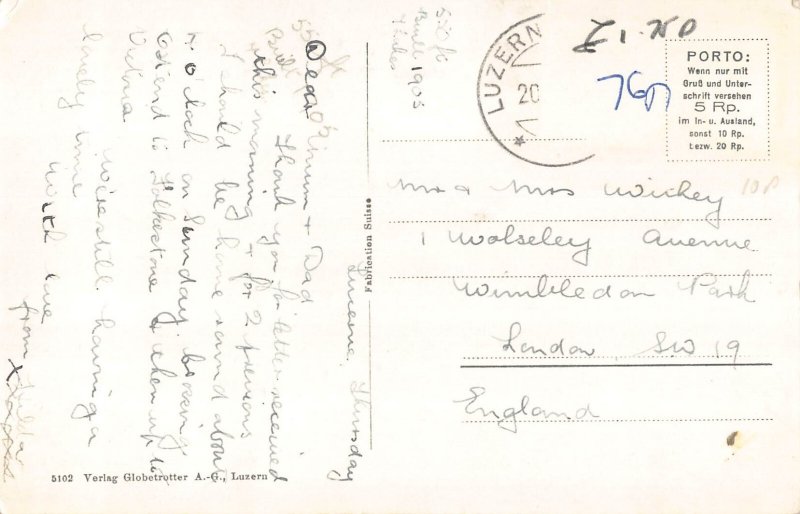 Lucerne, Thursday
Dear Mum & Dad
Thank you for letter received
this morning & for 2 previous
I should be home round about
o'clock on Sunday leaving
Ostend to Folkestone & then up to
Victoria
We're still having a
lovely time
With love
from Hilda
x
5102 Verlag Globetrotter A.-G., Luzern
Fabrication Suisse
Built 1905
LUZERN
20
£1.NP
76p
PORTO:
Wenn nur mit
Gruß und Unter-
schrift versehen
5 Rp.
im In- u. Ausland,
sonst 10 Rp.
bezw. 20 Rp.
10P
Mr & Mrs Wickey
1 Wolseley Avenue
Wimbledon Park
London, SW 19
England